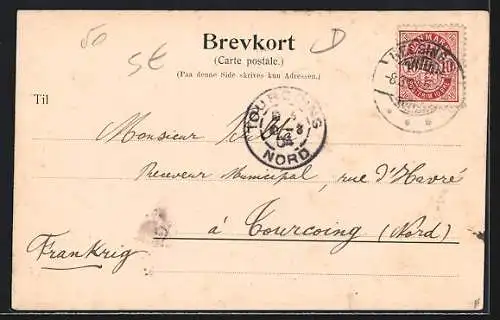 Brevkort
(Carte postale.)
(Paa denne Side skrives kun Adressen.)
Til
TOURCOING
04
NORD
Monsieur
Receveur Municipal, rue d'Havré
à Tourcoing (Nord)
Frankrig